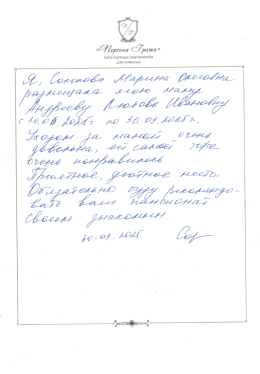 «Первая Грата»
для пожилых
Я, Соколова Марина Олеговна
размещала мою маму
Андрееву Любовь Ивановну
по 30.09.2025г.
Уходом за мамой очень
довольна, ей самой тоже
очень понравилось.
Приятное, уютное место.
Обязательно буду рекомендо-
вать ваш пансионат
своим знакомым.
30.09.2025